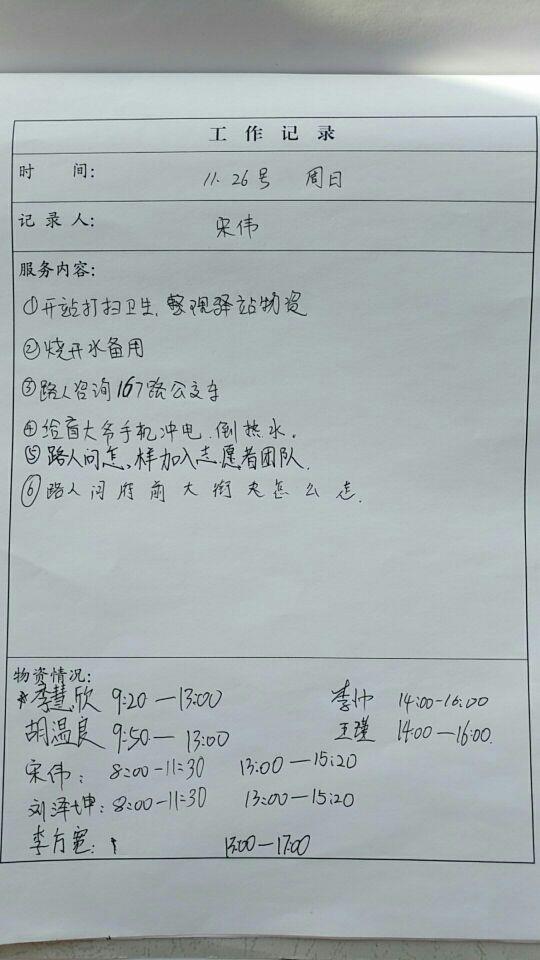 工作记录
时 间: 11.26号 周日
记录人: 宋伟
服务内容:
①开站打扫卫生,整理驿站物资
②烧开水备用
③路人咨询167路公交车
④给盲大爷手机冲电.倒热水。
⑤路人问怎样加入志愿者团队.
⑥路人问府前大街夹怎么走.
物资情况:
李慧欣 9:20—13:00 李帅 14:00-16:00
胡温良 9:50—13:00 王瑾 14:00—16:00.
宋伟: 8:00-11:30 13:00—15:20
刘泽坤: 8:00-11:30 13:00—15:20
李方宽: 13:00—17:00